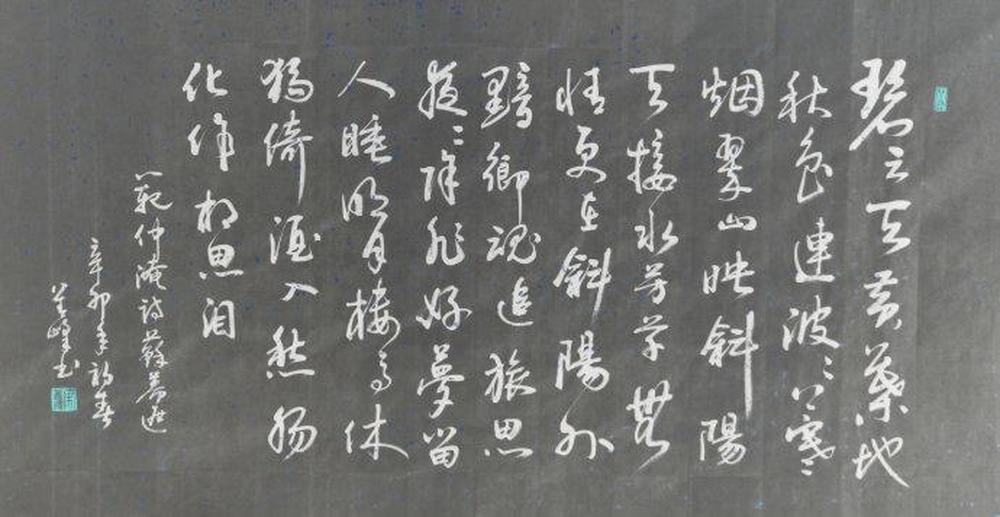 碧云天黄葉地
秋色連波〻上寒
烟翠山映斜陽
天接水芳草無
情更在斜陽外
黯鄉魂追旅思
夜〻除非好夢留
人睡明月樓高休
獨倚酒入愁腸
化作相思泪
範仲淹詩蘇幕遮
辛卯年初春
峰书